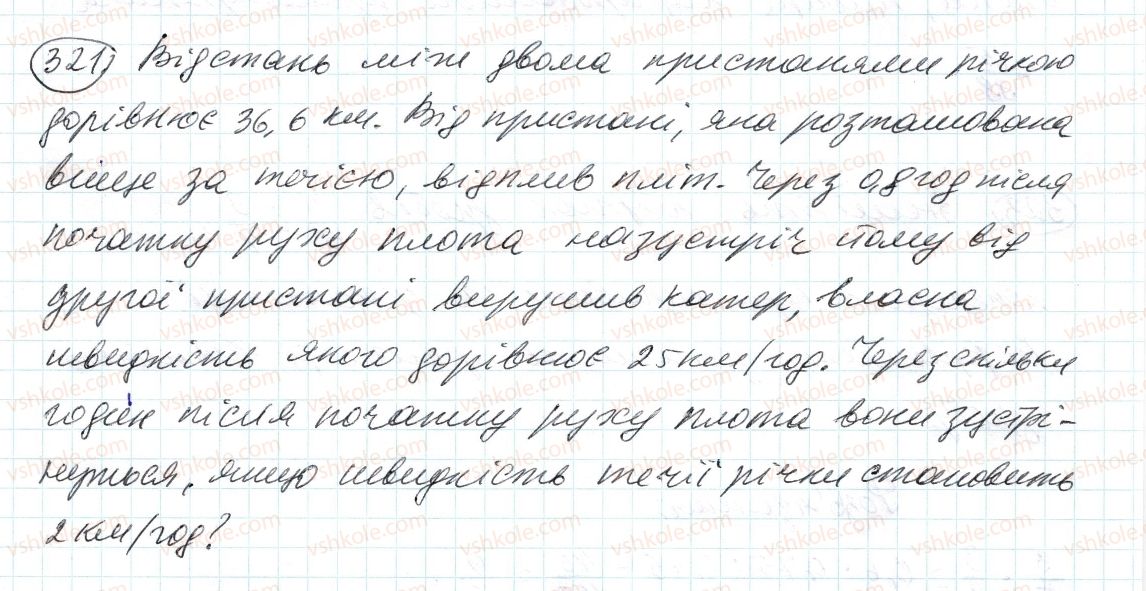 321) Відстань між двома пристанями річкою
дорівнює 36,6 км. Від пристані, яка розташована
вище за течією, відплив пліт. Через 0,8 год після
початку руху плота назустріч йому від
другої пристані вирушив катер, власна
швидкість якого дорівнює 25 км/год. Через скільки
годин після початку руху плота вони зустрі-
нуться, якщо швидкість течії річки становить
2 км/год?